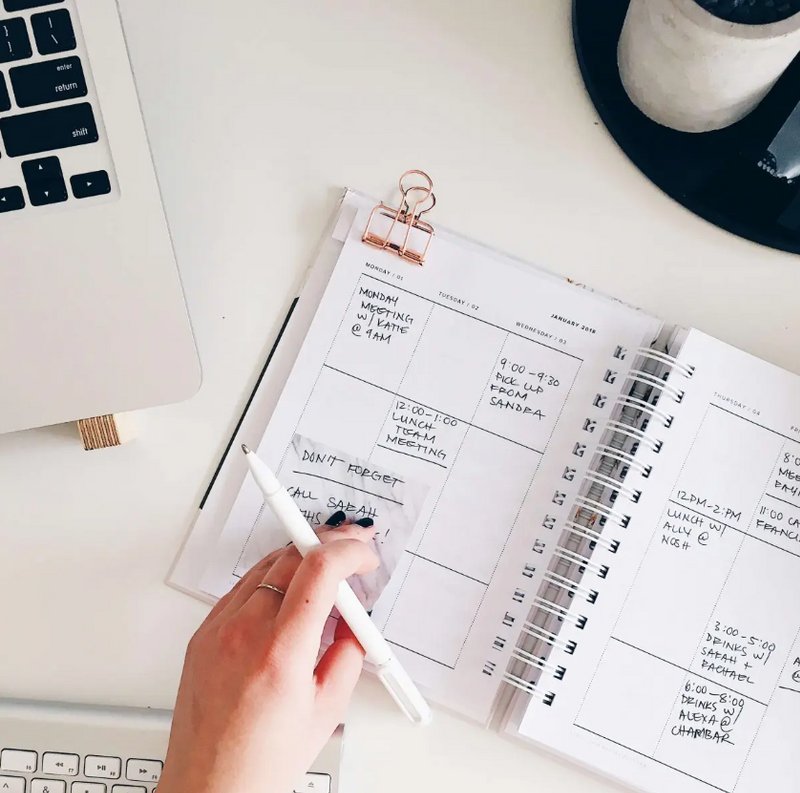 enter
return
shift
JANUARY 2018
MONDAY / 01
TUESDAY / 02
WEDNESDAY / 03
MONDAY
MEETING
W/ KATIE
@ 9AM
9:00-9:30
PICK UP
FROM
SANDRA
12:00-1:00
LUNCH
TEAM
MEETING
DON'T FORGET
CALL SARAH
THURSDAY / 04
12PM-2PM
LUNCH W/
ALLY @
NOSH
11:00
3:00-5:00
DRINKS W/
SARAH +
RACHAEL
6:00-8:00
DRINKS W/
ALEXA @
CHAMBAR